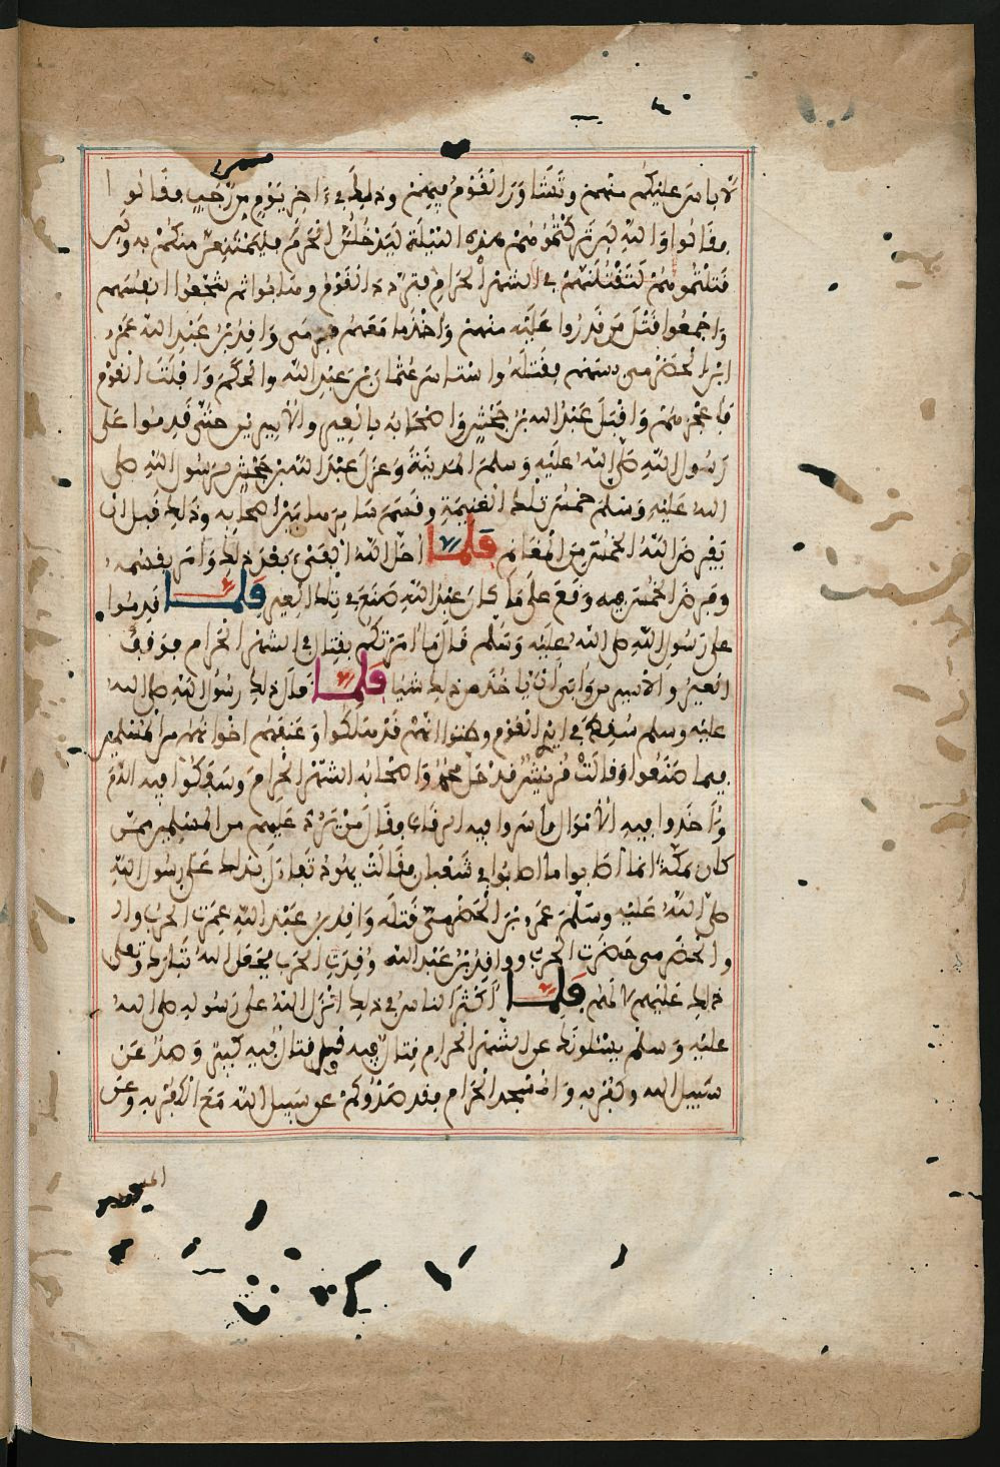 لا باس عليكم منهم وتشاور القوم فيهم وذلك في ءاخر يوم من رجب فقالوا
فقالوا والله لين تركتموهم هذه الليلة ليدخلن الحرم فليمتنعن منكم به ولين
قتلتموهم لتقتلنهم في الشهر الحرام فتردد القوم وهابوا ثم شجعوا انفسهم
واجمعوا قتل من قدروا عليه منهم واخذ ما معهم فرمى وافد بن عبد الله عمرو
ابن الحضرمي بسهم فقتله واستاسر عثمان بن عبد الله والحكم وافلت القوم
فاعجزهم واقبل عبد الله بن جحش واصحابه بالعير والاسيرين حتى قدموا على
رسول الله صلى الله عليه وسلم المدينة وعزل عبد الله بن جحش لرسول الله صلى
الله عليه وسلم خمس تلك الغنيمة وقسم سايرها بين اصحابه وذلك قبل ان
يفرض الله الخمس من المغانم فلما احل الله الفيء بعد ذلك وامر بقسمه
وفرض الخمس فيه وقع على ما كان عبد الله صنع في تلك العير فلما قدموا
على رسول الله صلى الله عليه وسلم قال ما امرتكم بقتال في الشهر الحرام فوقف
العير والاسيرين وابى ان ياخذ من ذلك شيا فلما قال ذلك رسول الله صلى الله
عليه وسلم سقط في ايدي القوم وظنوا انهم قد هلكوا وعنفهم اخوانهم من المسلمين
فيما صنعوا وقالت قريش قد احل محمد واصحابه الشهر الحرام وسفكوا فيه الدم
واخذوا فيه الاموال واسروا فيه الرجال فقال من يرد عليهم من المسلمين ممن
كان بمكة انما اصابوا ما اصابوا في شعبان وقالت يهود تفاءل بذلك على رسول الله
صلى الله عليه وسلم عمرو بن الحضرمي قتله وافد بن عبد الله عمرت الحرب
والحضرمي حضرت الحرب ووافد بن عبد الله وقدت الحرب فجعل الله تبارك وتعلى
ذلك عليهم لا لهم فلما اكثر الناس في ذلك انزل الله على رسوله صلى الله
عليه وسلم يسئلونك عن الشهر الحرام قتال فيه قل قتال فيه كبير وصد عن
سبيل الله وكفر به والمسجد الحرام فقد صدوكم عن سبيل الله مع الكفر به وعن